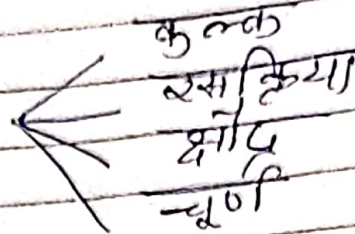 कल्क
रसक्रिया
क्षौद
चूर्ण